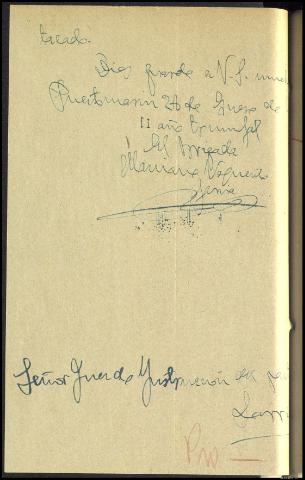 Dios guarde a V.S. muc
Puertomarin 26 de Enero de
II año triunfal
El Brigada
Mariano
Señor Juez de Instrucción del
Sarri